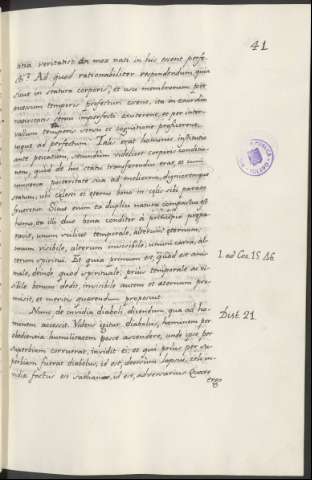 41
titia veritatis? An mox nati in his essent perfe
cti? Ad quod rationabiliter respondendum, quia
sicut in statura corporis, et usu membrorum per
temporis profecturi erant, ita in exordio
nascentes sensu imperfecti existerent, et per inter
vallum temporis sensu et cognitione proficerent
usque ad perfectum. Talis erat hominis institutio
ante peccatum, secundum videlicet corporis conditio
nem, quod de hoc statu transferendus erat, cum
universa posteritate sua ad meliorem, dignioremque
statum, ubi celesti et eterno bono in celis sibi parato
frueretur. Sicut enim ex duplici natura compactus est
homo, ita illi duo bona conditor à principio prepa
ravit, unum vult temporale, alterum eternum;
unum visibile, alterum invisibile, unum carni, al
terum spiritui. Et quia primum est, quod est ani
male, deinde quod spirituale, prius temporale ac vi
sibile bonum dedit, invisibile autem et eternum pro
misit, et meritis querendum proposuit.
1. ad Cor. 15
Nunc de invidia diaboli dicendum qua ad ho
minem accessit. Videns igitur diabolus, hominem per
obedientiam humilitatem posse ascendere, unde ipse per
superbiam corruerat, invidit ei, et qui prius per su
perbiam fuerat diabolus, id est, deorsum lapsus, zelo in
vidie factus est sathanas, id est, adversarius. Quare
ergo
Dist. 21